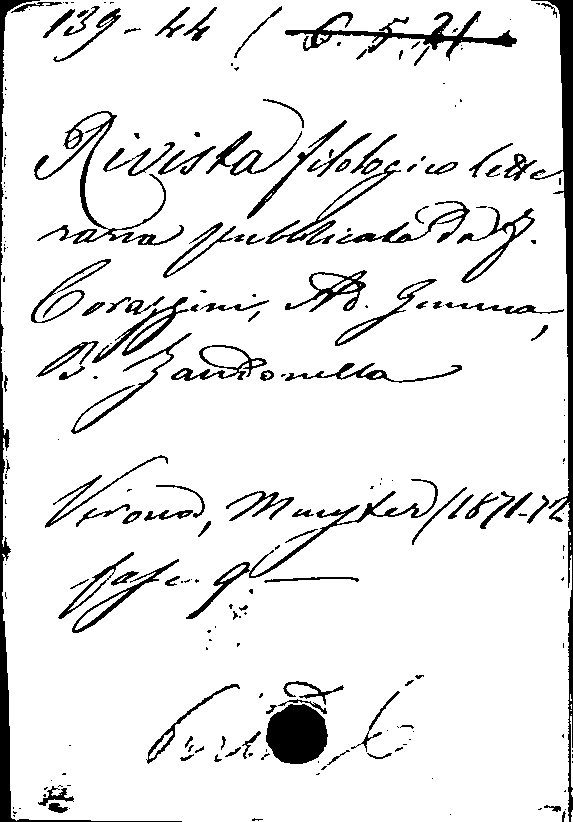 139-44 ( 6. 5. 21
Rivista filologico lette-
raria pubblicata da F.
Corazzini, Ad. Gemma,
B. Zandonella
Verona, Munster (1871-72
fasc. 9 —